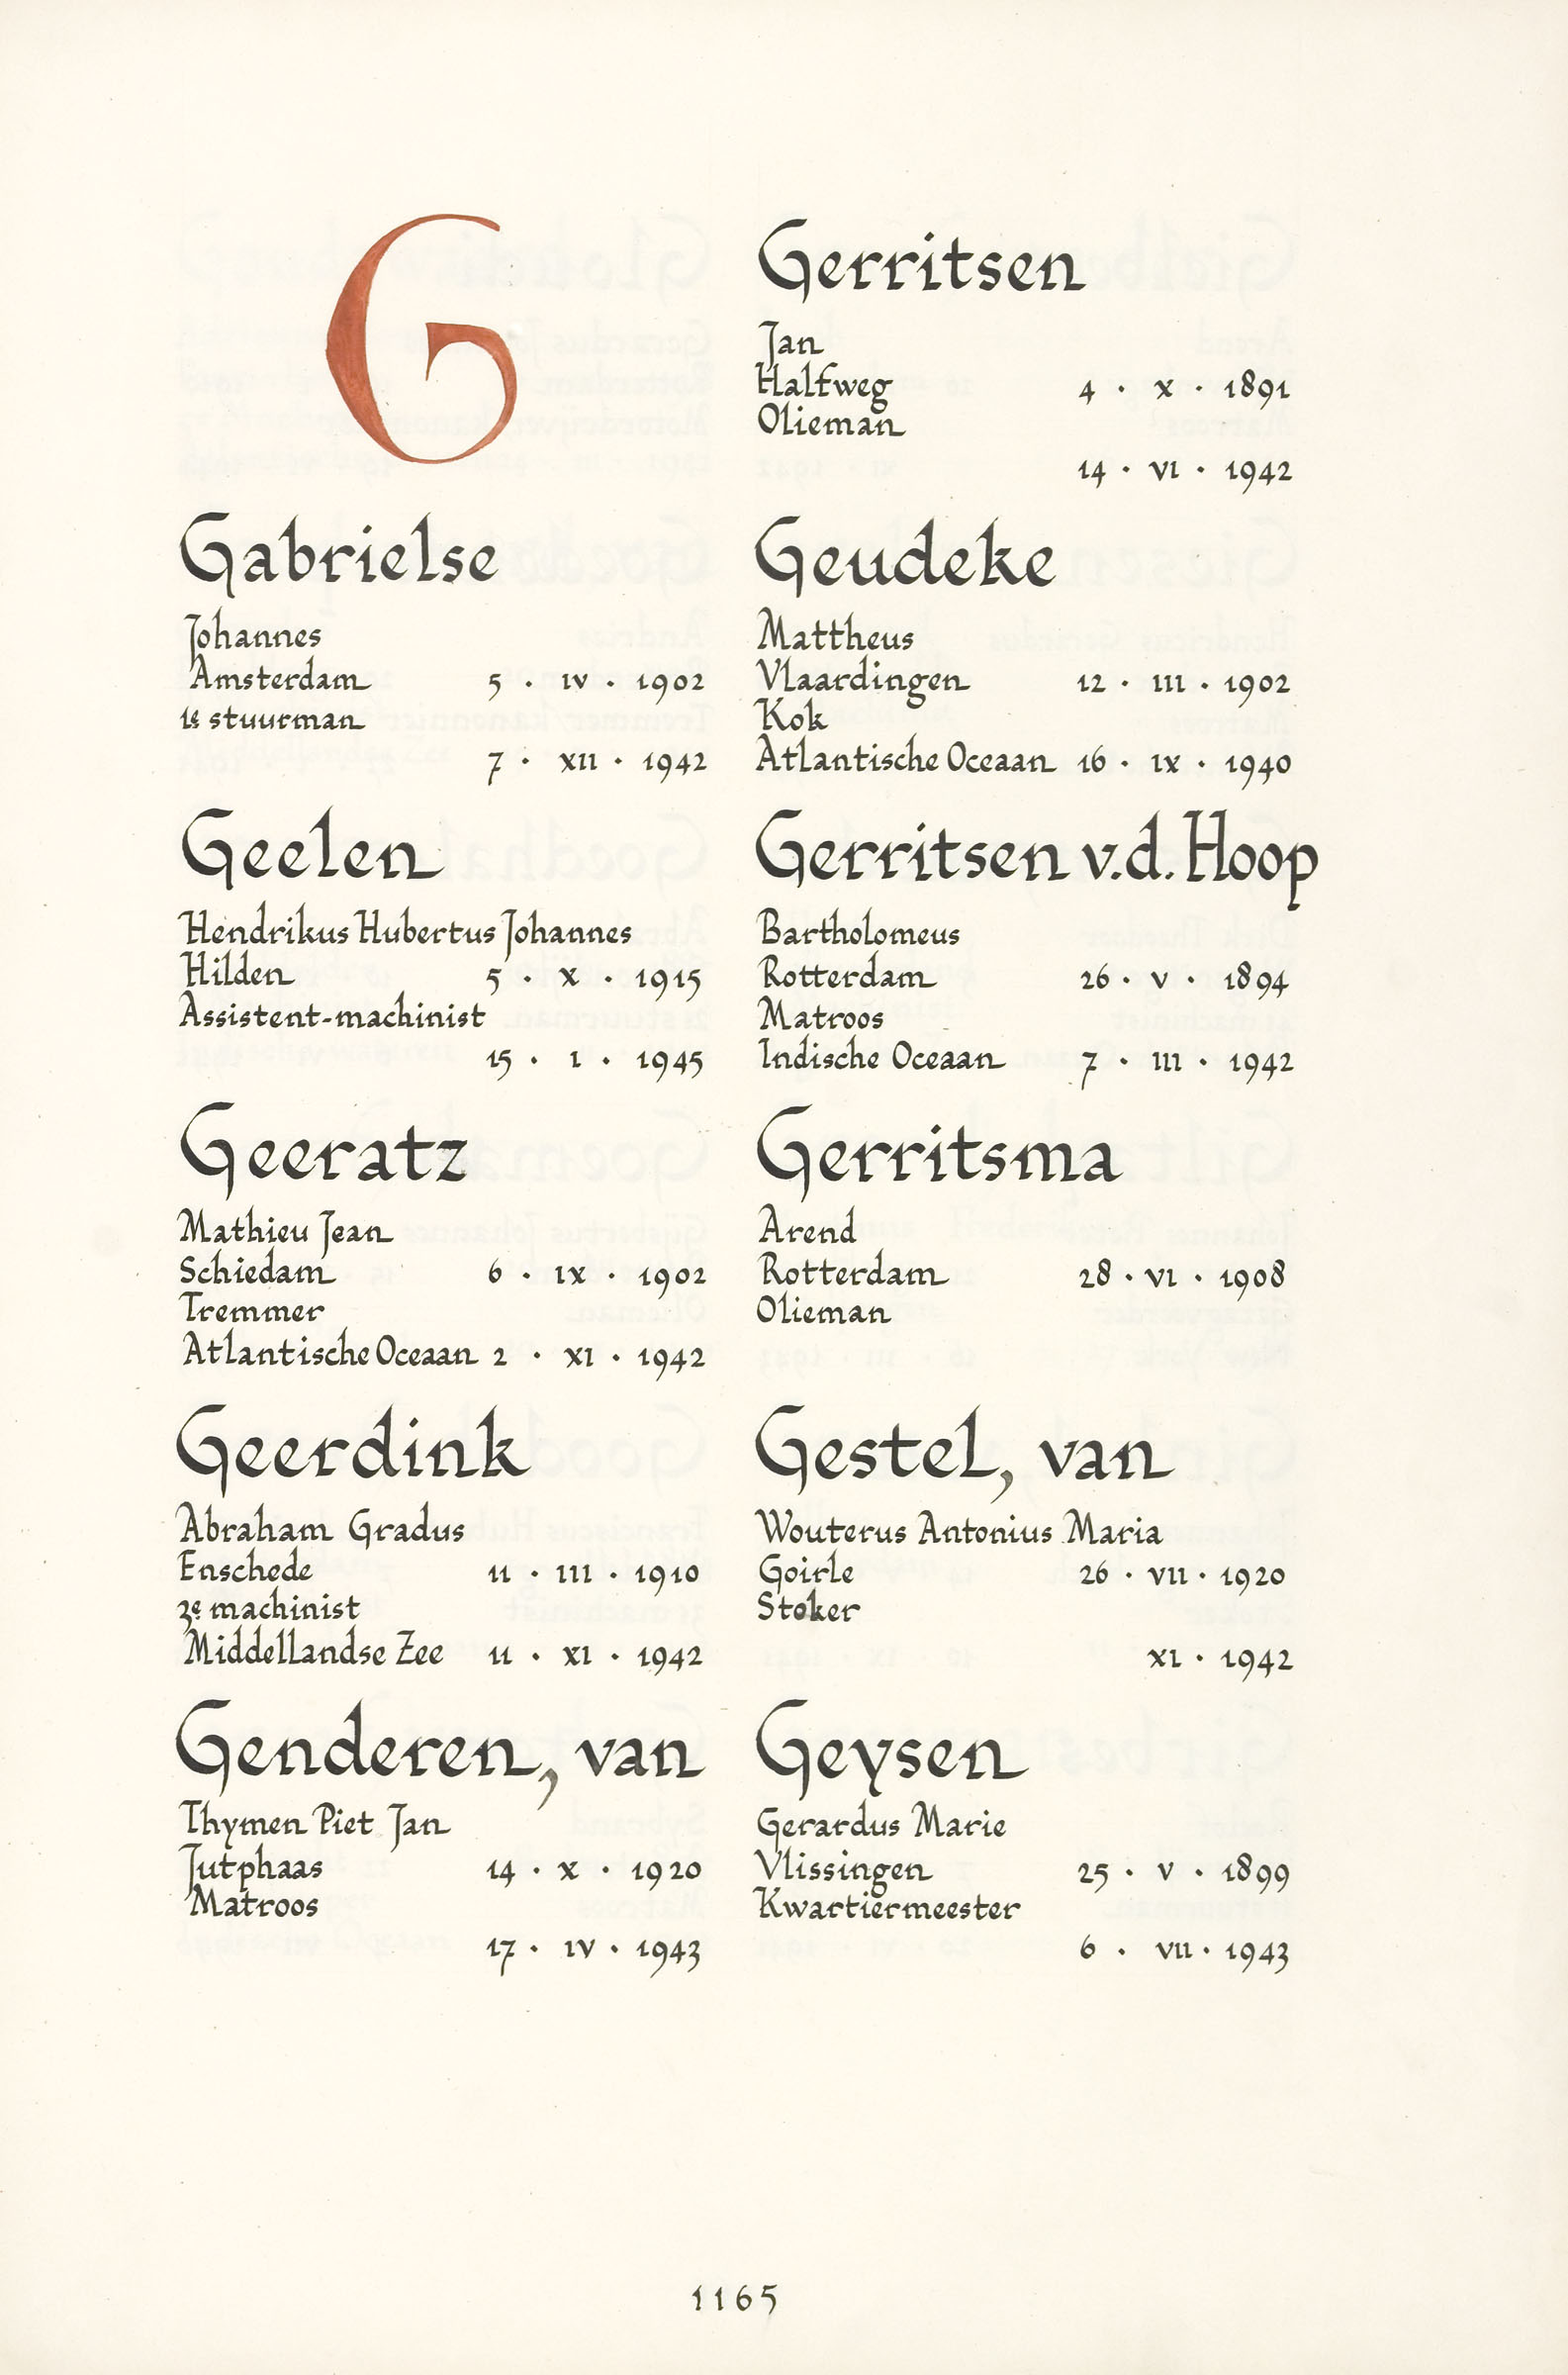 G
Gabrielse
Johannes
Amsterdam 5 · IV · 1902
1e stuurman
7 · XII · 1942
Geelen
Hendrikus Hubertus Johannes
Hilden 5 · X · 1915
Assistent-machinist
15 · I · 1945
Geeratz
Mathieu Jean
Schiedam 6 · IX · 1902
Tremmer
Atlantische Oceaan 2 · XI · 1942
Geerdink
Abraham Gradus
Enschede 11 · III · 1910
3e machinist
Middellandse Zee 11 · XI · 1942
Genderen, van
Thymen Piet Jan
Jutphaas 14 · X · 1920
Matroos
17 · IV · 1943
Gerritsen
Jan
Halfweg 4 · X · 1891
Olieman
14 · VI · 1942
Geudeke
Mattheus
Vlaardingen 12 · III · 1902
Kok
Atlantische Oceaan 16 · IX · 1940
Gerritsen v.d. Hoop
Bartholomeus
Rotterdam 26 · V · 1894
Matroos
Indische Oceaan 7 · III · 1942
Gerritsma
Arend
Rotterdam 28 · VI · 1908
Olieman
Gestel, van
Wouterus Antonius Maria
Goirle 26 · VII · 1920
Stoker
XI · 1942
Geysen
Gerardus Marie
Vlissingen 25 · V · 1899
Kwartiermeester
6 · VII · 1943
1165